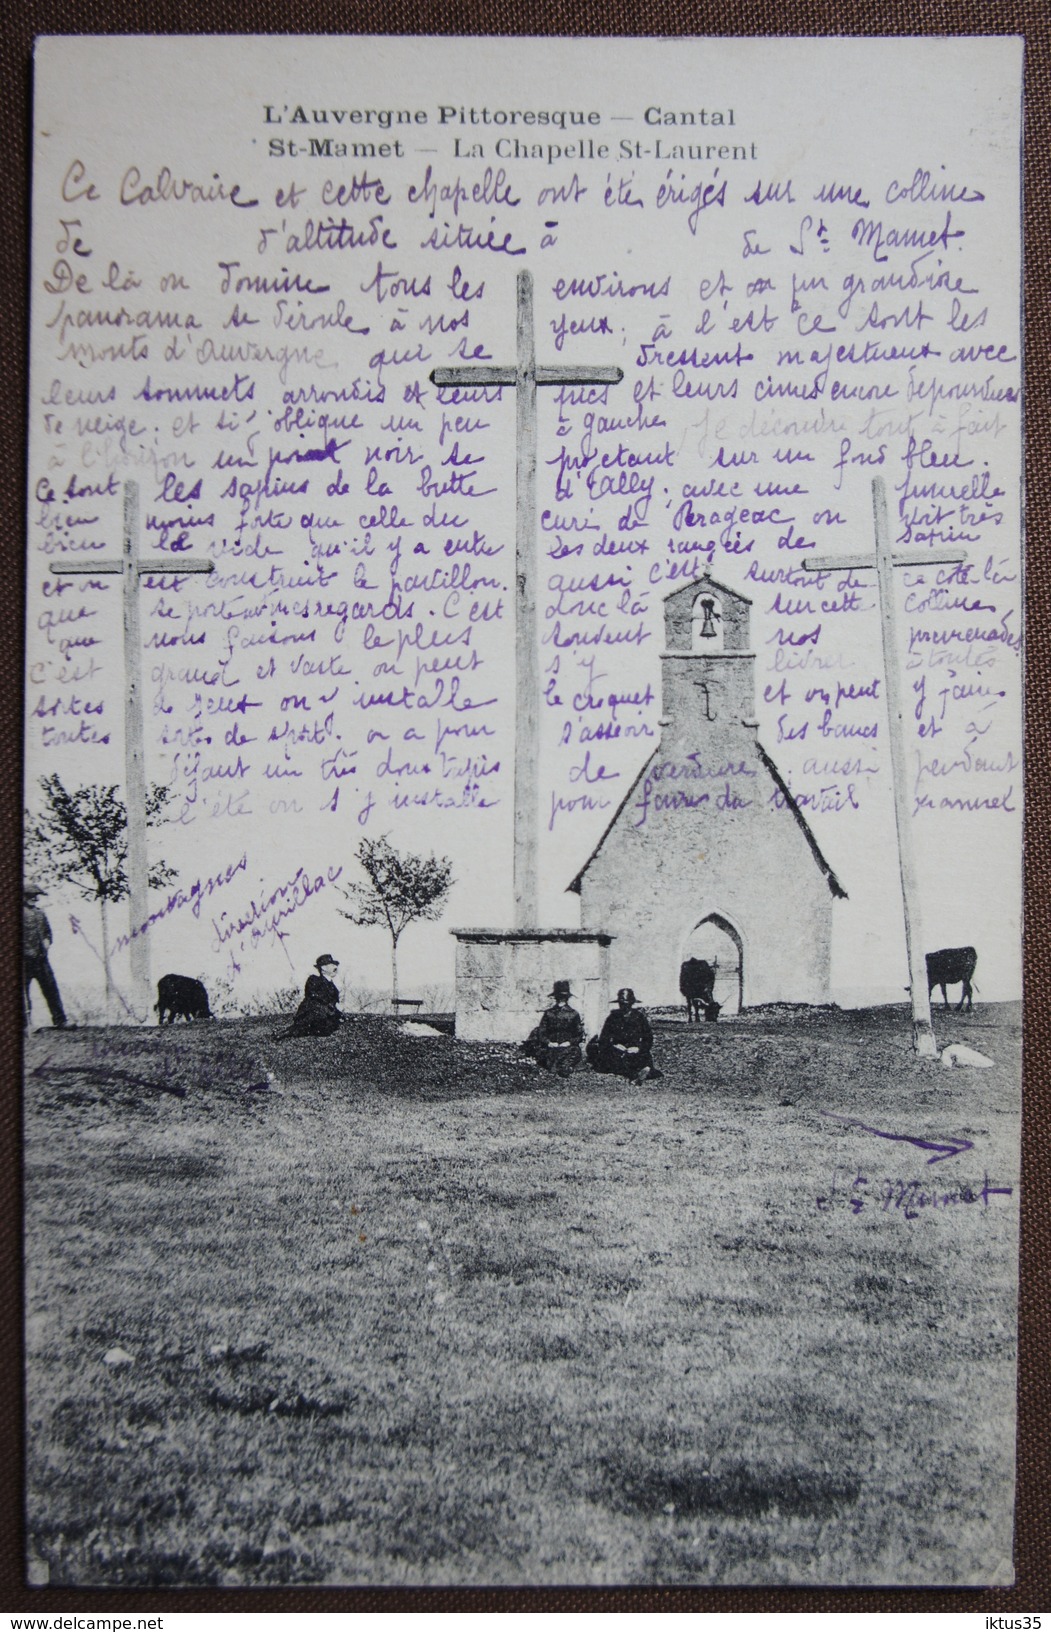 L'Auvergne Pittoresque — Cantal
St-Mamet — La Chapelle St-Laurent
Ce Calvaire et cette chapelle ont été érigés sur une colline
de d'altitude située à de St Mamet.
De là on domine tous les environs et un grandiose
panorama se déroule à nos yeux; à l'est ce sont les
monts d'Auvergne qui se dressent majestueux avec
leurs sommets arrondis et leurs pics et leurs cimes encore dépourvues
de neige. et si j'oblique un peu à gauche je découvre tout à fait
à l'horizon un point noir se projetant sur un fond bleu.
Ce sont les sapins de la butte d'Ally, avec une jumelle
bien moins forte que celle du curé de Parageac on voit très
bien le vide qu'il y a entre les deux rangées de sapin
et on est construit le pavillon. aussi c'est surtout de ce côté là
que se portent mes regards. C'est donc là sur cette colline,
que nous faisons le plus souvent nos promenades.
C'est grand et vaste on peut s'y livrer à toutes
sortes de jeux on y installe le croquet et on peut y faire
toutes sortes de sport. on a pour s'asseoir des bancs et à
défaut un très doux tapis de verdure. aussi pendant
l'été on s'y installe pour faire du travail manuel
montagnes
direction d'Aurillac
St Mamet
iktus35